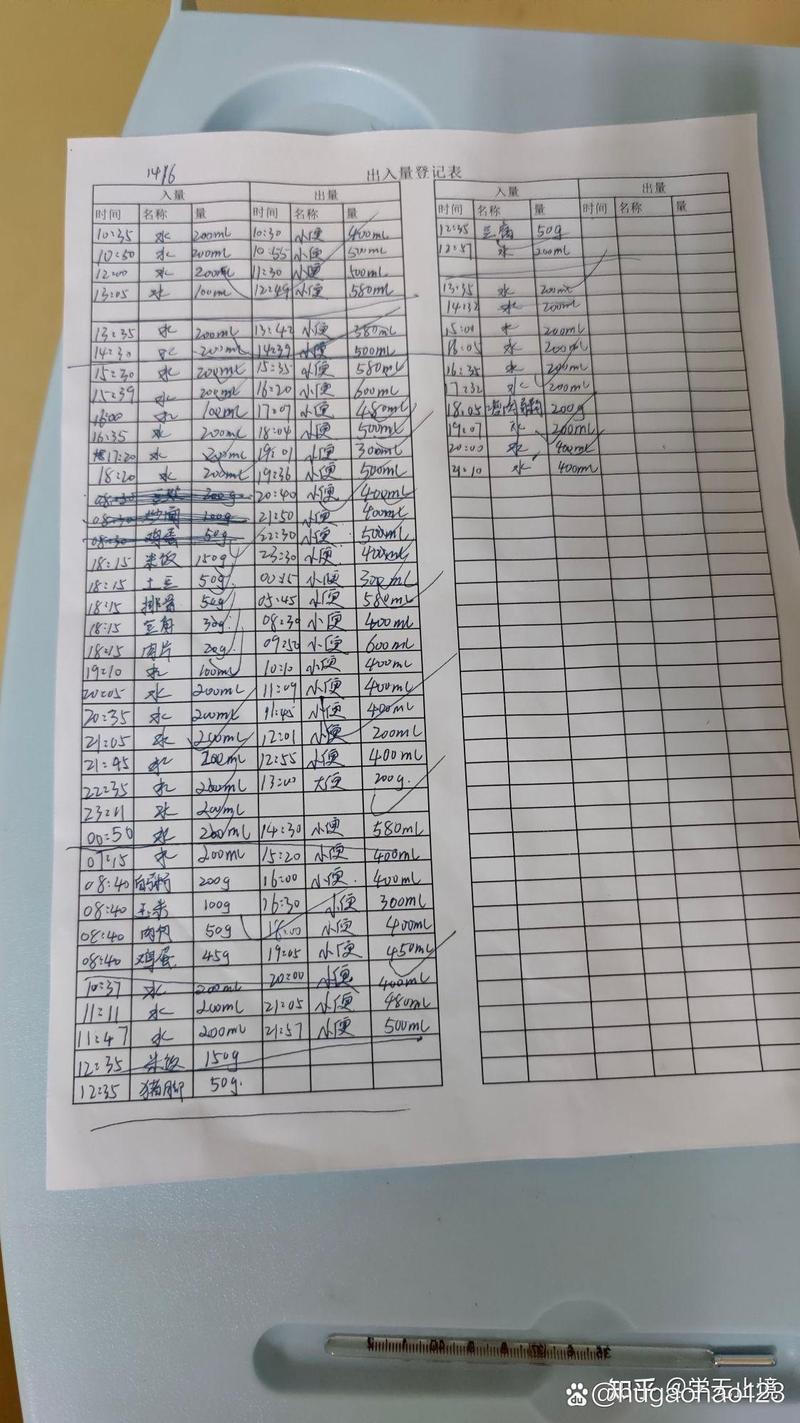 出入量登记表
入量 出量
时间 名称 量 时间 名称 量
10:35 水 200ml 10:30 小便 400ml
10:50 水 200ml 10:55 小便 500ml
12:00 水 200ml 11:30 小便 500ml
13:05 水 100ml 12:49 小便 580ml
13:35 水 200ml 13:42 小便 380ml
14:30 水 200ml 14:39 小便 500ml
15:30 水 200ml 15:35 小便 580ml
15:39 水 200ml 16:20 小便 600ml
16:00 水 100ml 17:07 小便 480ml
16:35 水 200ml 18:04 小便 500ml
17:20 水 200ml 19:01 小便 300ml
18:20 水 200ml 19:36 小便 500ml
08:30 200g 20:40 小便 400ml
08:30 100g 21:50 小便 400ml
08:30 鸡蛋 50g 22:30 小便 500ml
18:15 米饭 150g 23:30 小便 400ml
18:15 土豆 50g 小便 300ml
18:15 排骨 50g 05:45 小便 580ml
18:15 30g 08:30 小便 400ml
18:15 肉片 20g 09:50 小便 600ml
19:10 水 100ml 10:10 小便 400ml
20:05 水 200ml 11:09 小便 400ml
20:35 水 200ml 11:45 小便 400ml
21:05 水 200ml 12:01 小便 200ml
21:45 水 200ml 12:55 小便 400ml
22:35 水 200ml 13:00 大便 200g.
23:11 水 200ml
00:50 水 200ml 14:30 小便 580ml
07:15 水 200ml 15:20 小便 400ml
08:40 200g 16:00 小便 400ml
08:40 玉米 100g 16:30 小便 300ml
08:40 50g 18:00 小便 400ml
08:40 鸡蛋 45g 19:05 小便 450ml
10:37 水 200ml 20:00 小便 400ml
11:11 水 200ml 21:05 小便 480ml
11:47 水 200ml 21:57 小便 500ml
12:35 米饭 150g
12:35 猪脚 50g.
入量 出量
时间 名称 量 时间 名称 量
12:35 豆腐 50g
12:57 水 200ml
13:35 水 200ml
14:32 水 200ml
15:01 水 200ml
水 200ml
16:35 水 200ml
17:32 水 200ml
18:05 200g
19:07 水 200ml
20:00 水 400ml
21:10 水 400ml
知乎 @学无止境
@hugaohao123